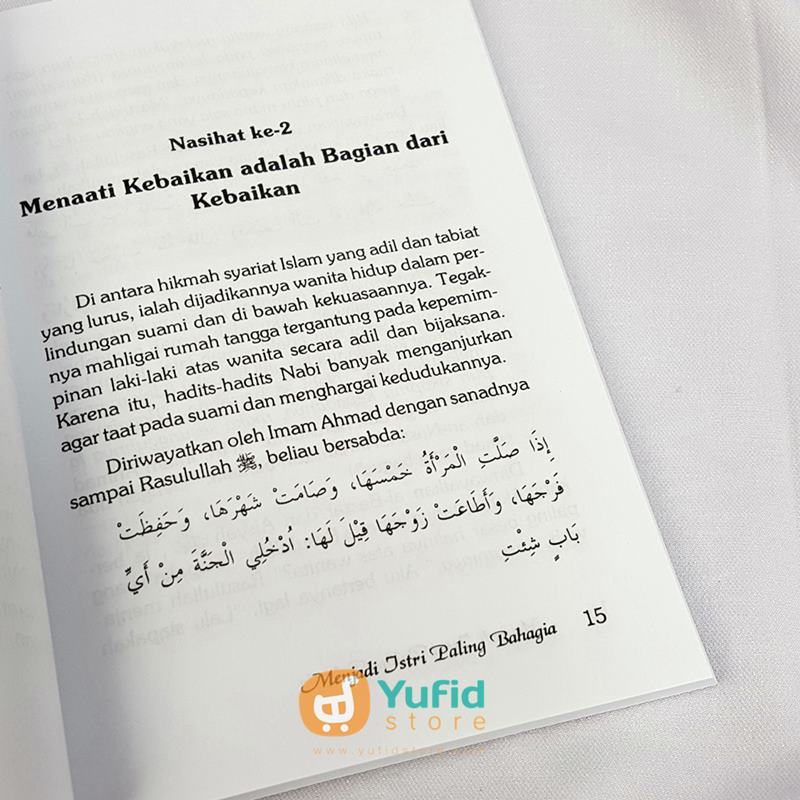 Nasihat ke-2
Menaati Kebaikan adalah Bagian dari
Kebaikan
Di antara hikmah syariat Islam yang adil dan tabiat
yang lurus, ialah dijadikannya wanita hidup dalam per-
lindungan suami dan di bawah kekuasaannya. Tegak-
nya mahligai rumah tangga tergantung pada kepemim-
pinan laki-laki atas wanita secara adil dan bijaksana.
Karena itu, hadits-hadits Nabi banyak menganjurkan
agar taat pada suami dan menghargai kedudukannya.
Diriwayatkan oleh Imam Ahmad dengan sanadnya
sampai Rasulullah ﷺ, beliau bersabda:
إِذَا صَلَّتِ الْمَرْأَةُ خَمْسَهَا، وَصَامَتْ شَهْرَهَا، وَحَفِظَتْ
فَرْجَهَا، وَأَطَاعَتْ زَوْجَهَا قِيْلَ لَهَا: اُدْخُلِي الْجَنَّةَ مِنْ أَيِّ
بَابٍ شِئْتِ
Menjadi Istri Paling Bahagia 15
Yufid
store
www.yufidstore.com